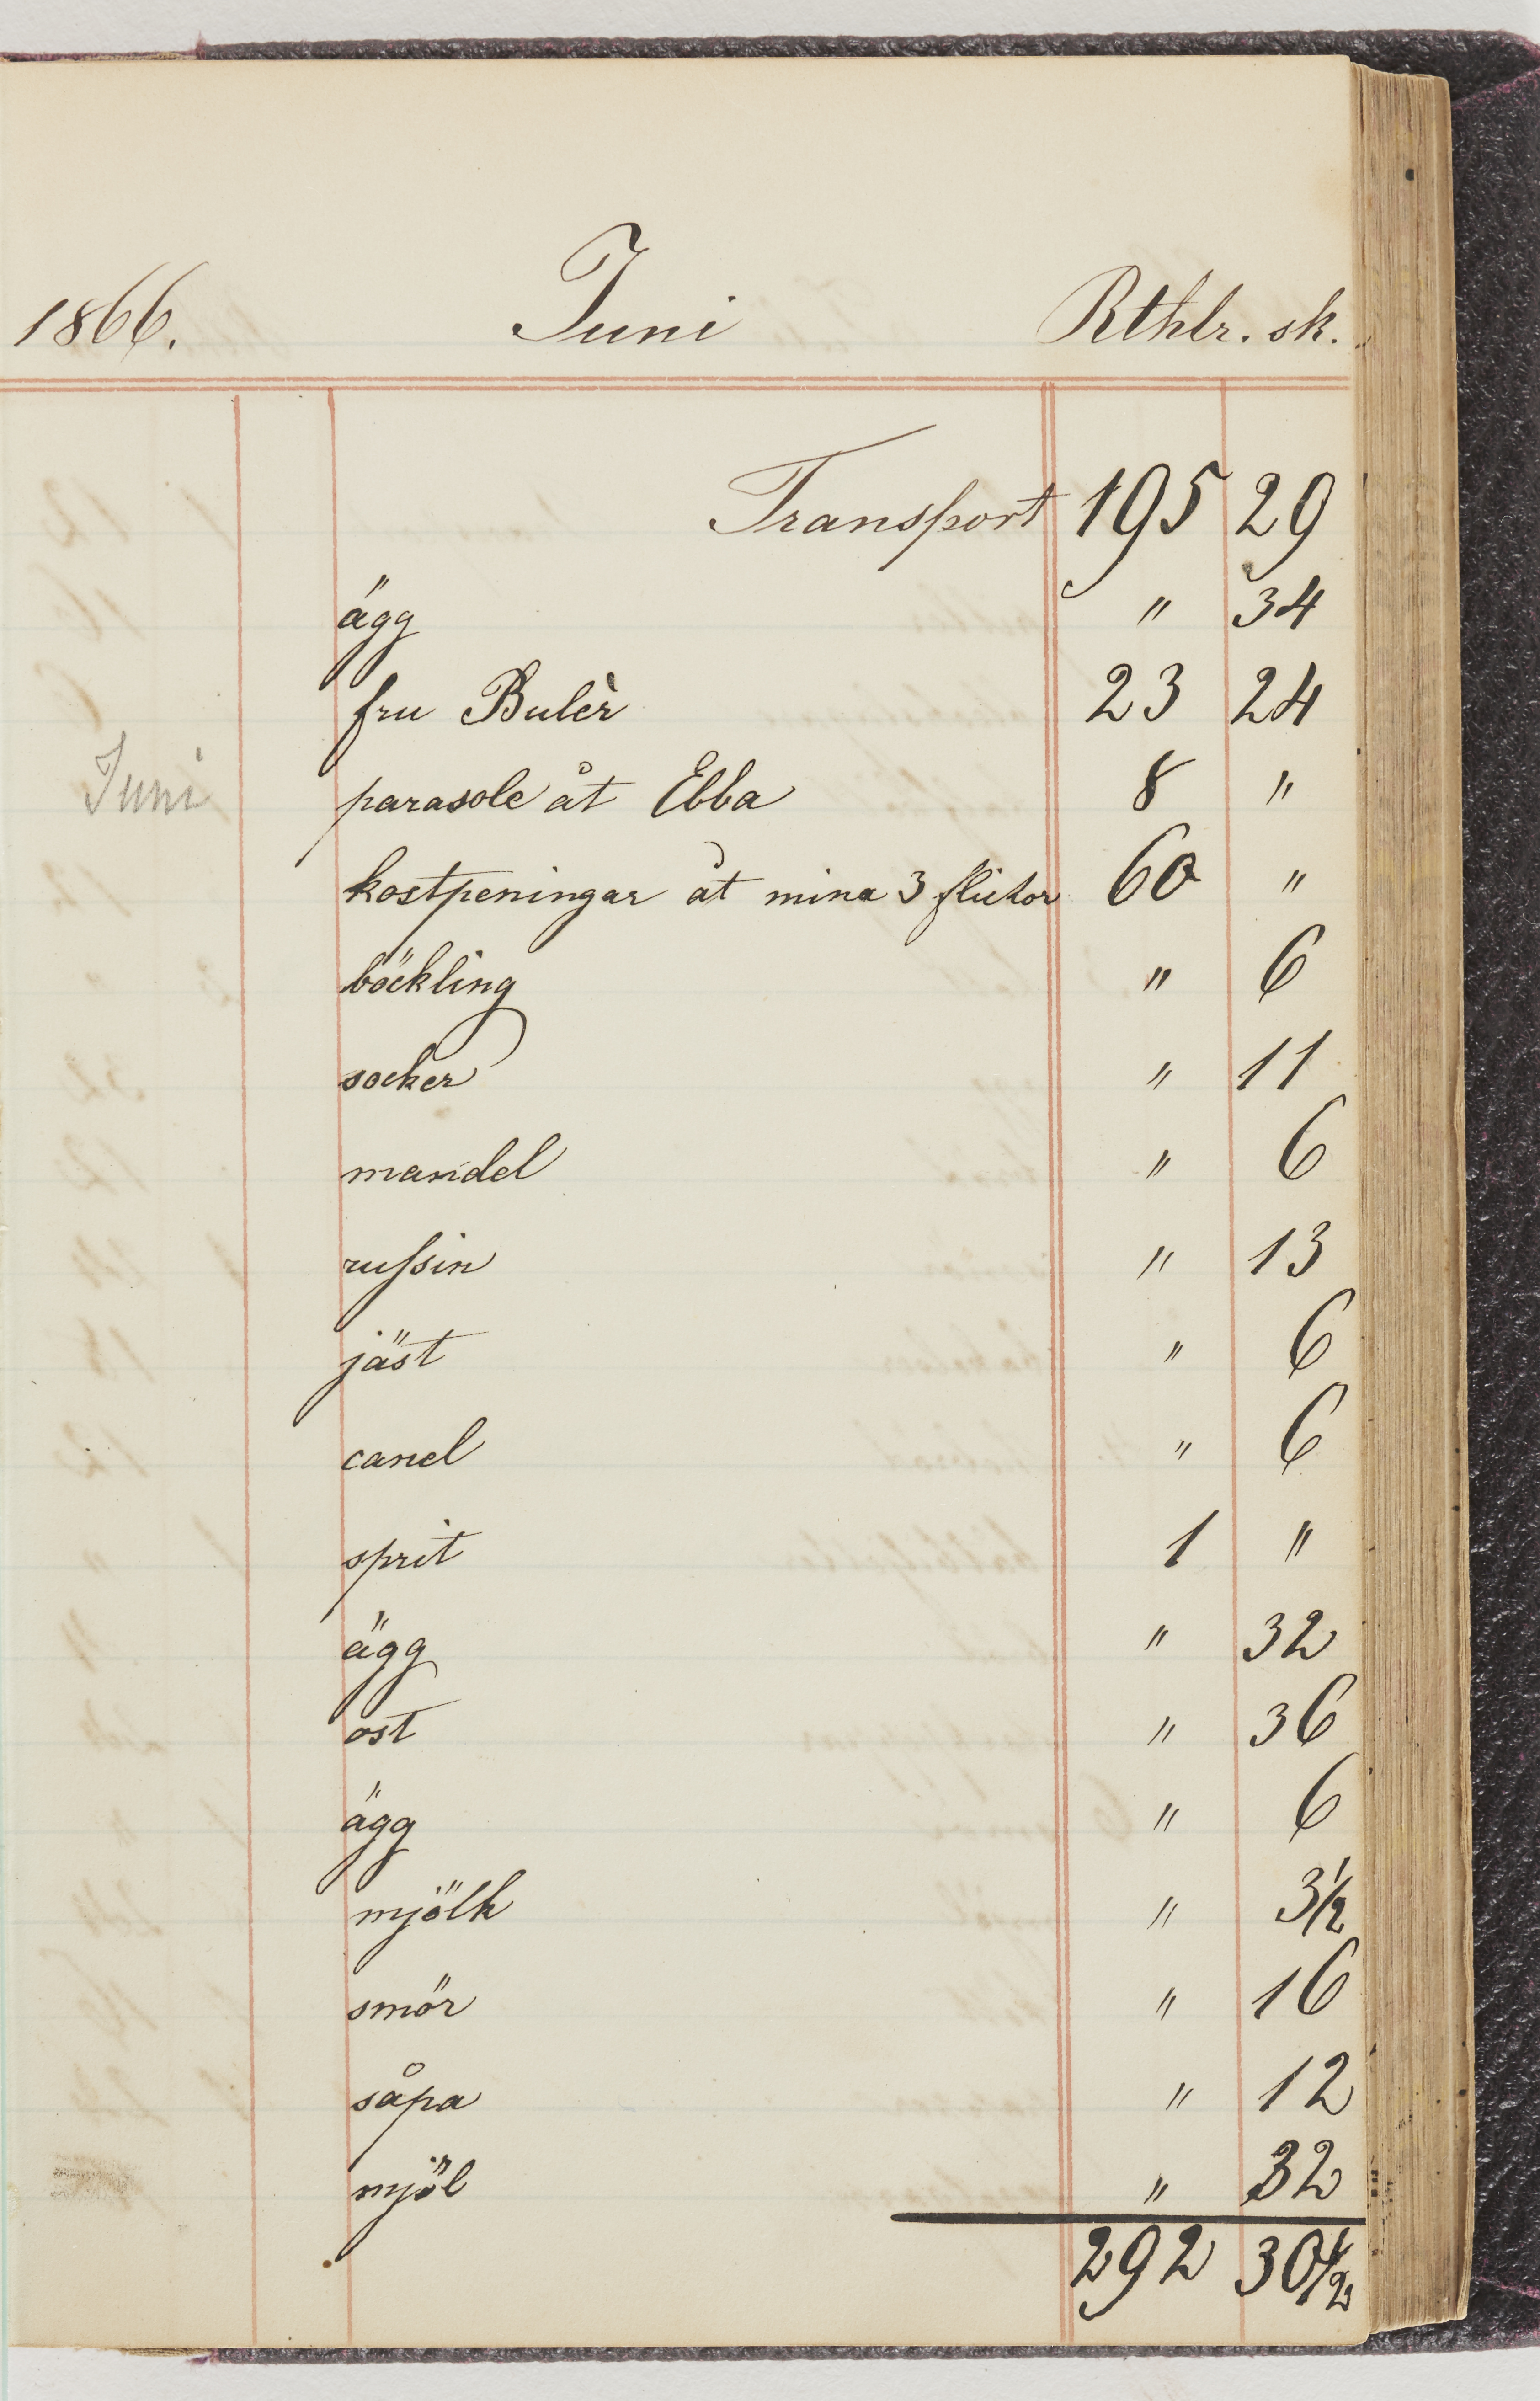 1866. Juni Rthlr. sk.
Transport 195 29
ägg " 34
fru Bulèr 23 24
Juni parasole åt Ebba 8 "
kostpeningar åt mina 3 flickor 60 "
böckling " 6
socker " 11
mandel " 6
russin " 13
jäst " 6
canel " 6
sprit 1 "
ägg " 32
ost " 36
ägg " 6
mjölk " 3½
smör " 16
såpa " 12
mjöl " 32
292 30½